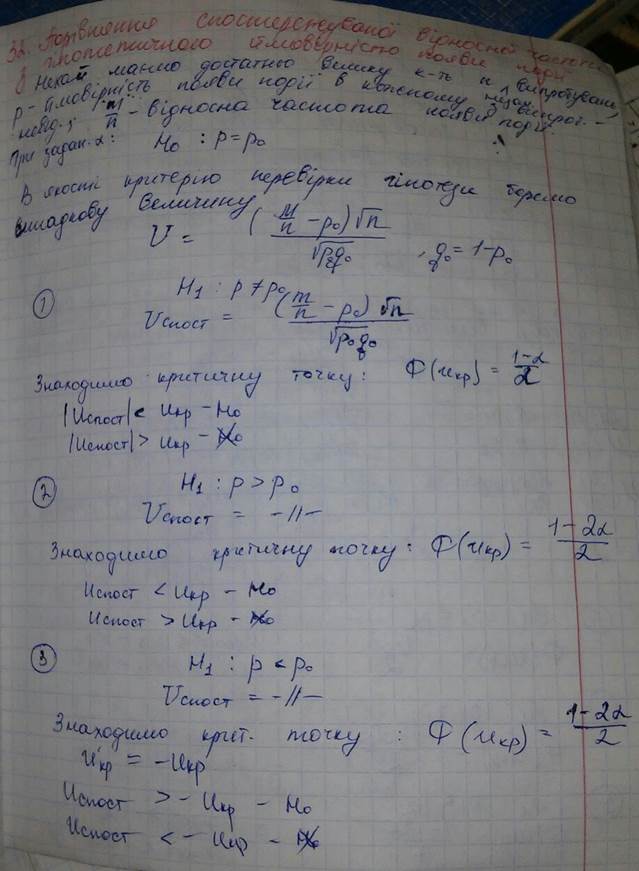 32. Порівняння спостережуваної відносної частоти
з гіпотетичного ймовірністю появи події
Нехай маємо достатньо велику к-ть n випробувань,
p - ймовірність появи події в кожному випроб. -
невід.; m/n - відносна частота появи події.
При задан. α: H₀ : p = p₀
В якості критерію перевірки гіпотези беремо
випадкову величину
U = (m/n - p₀)√n / √p₀q₀ , q₀ = 1 - p₀
① H₁ : p ≠ p₀
Uспост = (m/n - p₀)√n / √p₀q₀
Знаходимо критичну точку: Ф(uкр) = 1-α/2
|Uспост| < uкр - H₀
|Uспост| > uкр - H₀
② H₁ : p > p₀
Uспост = -//-
Знаходимо критичну точку: Ф(uкр) = 1-2α/2
Uспост < uкр - H₀
Uспост > uкр - H₀
③ H₁ : p < p₀
Uспост = -//-
Знаходимо крит. точку : Ф(uкр) = 1-2α/2
u'кр = -uкр
Uспост > - uкр - H₀
Uспост < - uкр - H₀